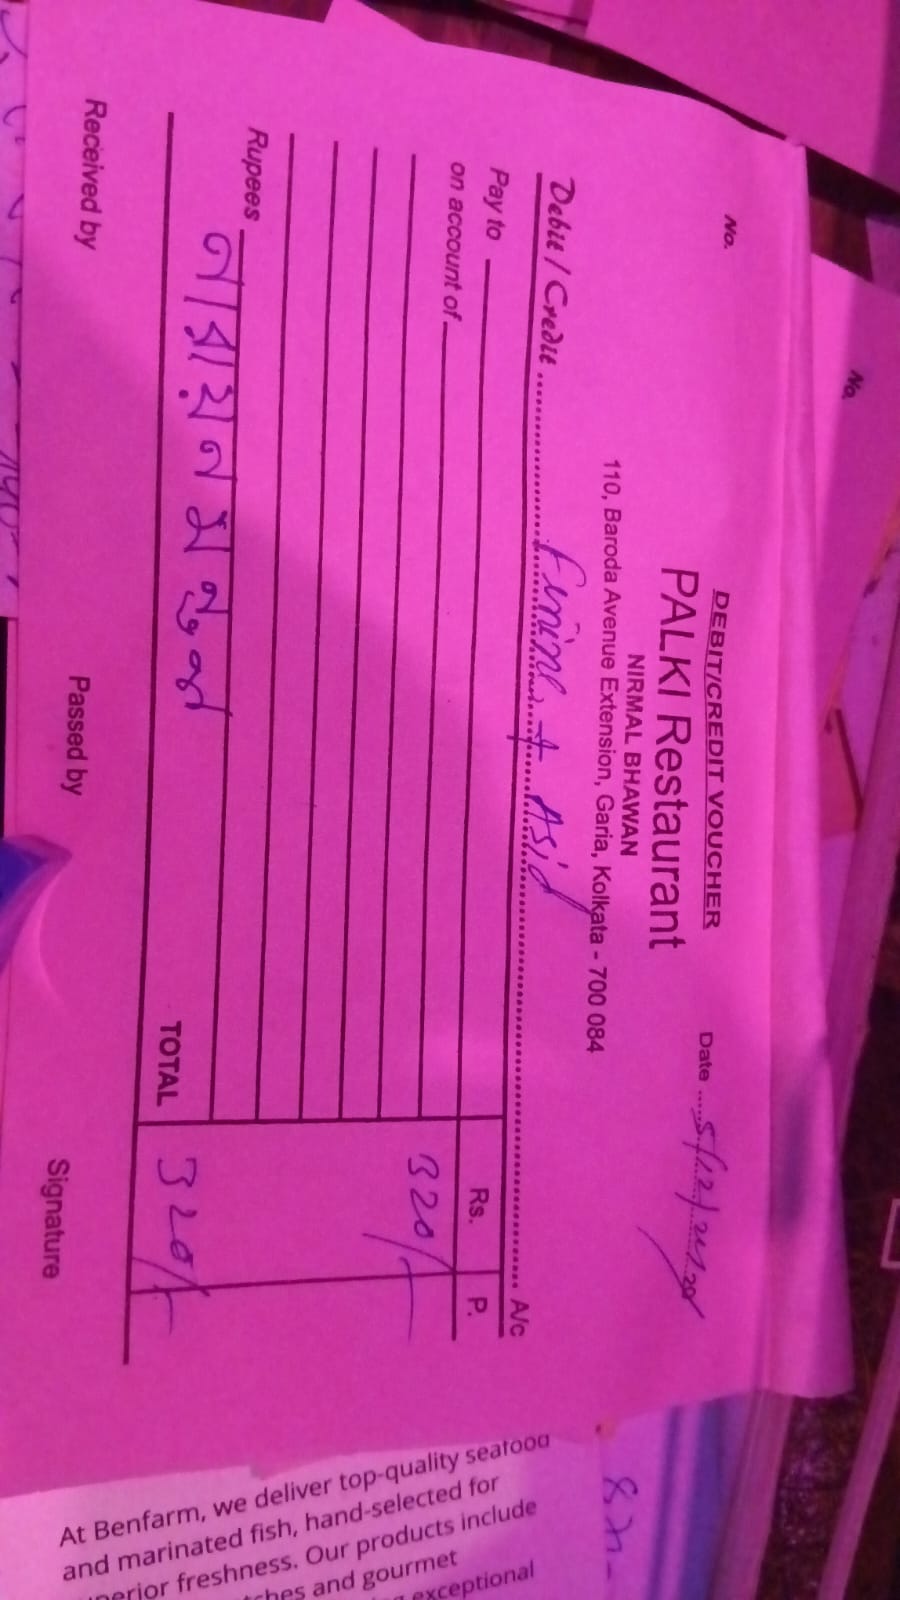 No.
No.
DEBIT/CREDIT VOUCHER
PALKI Restaurant
NIRMAL BHAWAN
110, Baroda Avenue Extension, Garia, Kolkata - 700 084
Date
Debit / Credit Finine + Asid A/c
Pay to
on account of
Rs. P.
320/-
Rupees
নারায়ন মন্ডল
TOTAL 320/-
Received by Passed by Signature
At Benfarm, we deliver top-quality seafood
and marinated fish, hand-selected for
freshness. Our products include
and gourmet
exceptional